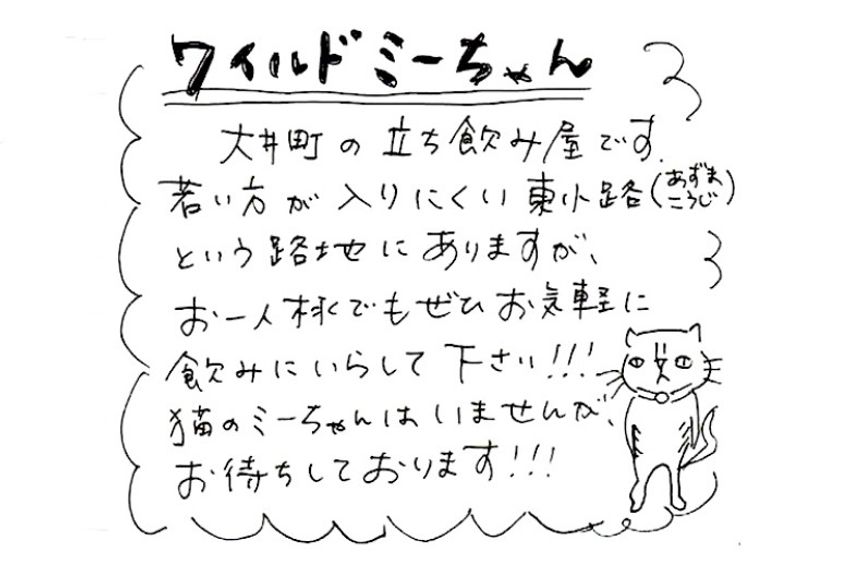 ワイルドミーちゃん
大井町の立ち飲み屋です。
若い方が入りにくい東小路(あずまこうじ)
という路地にありますが、
お一人様でもぜひお気軽に
飲みにいらして下さい!!!
猫のミーちゃんはいませんが、
お待ちしております!!!